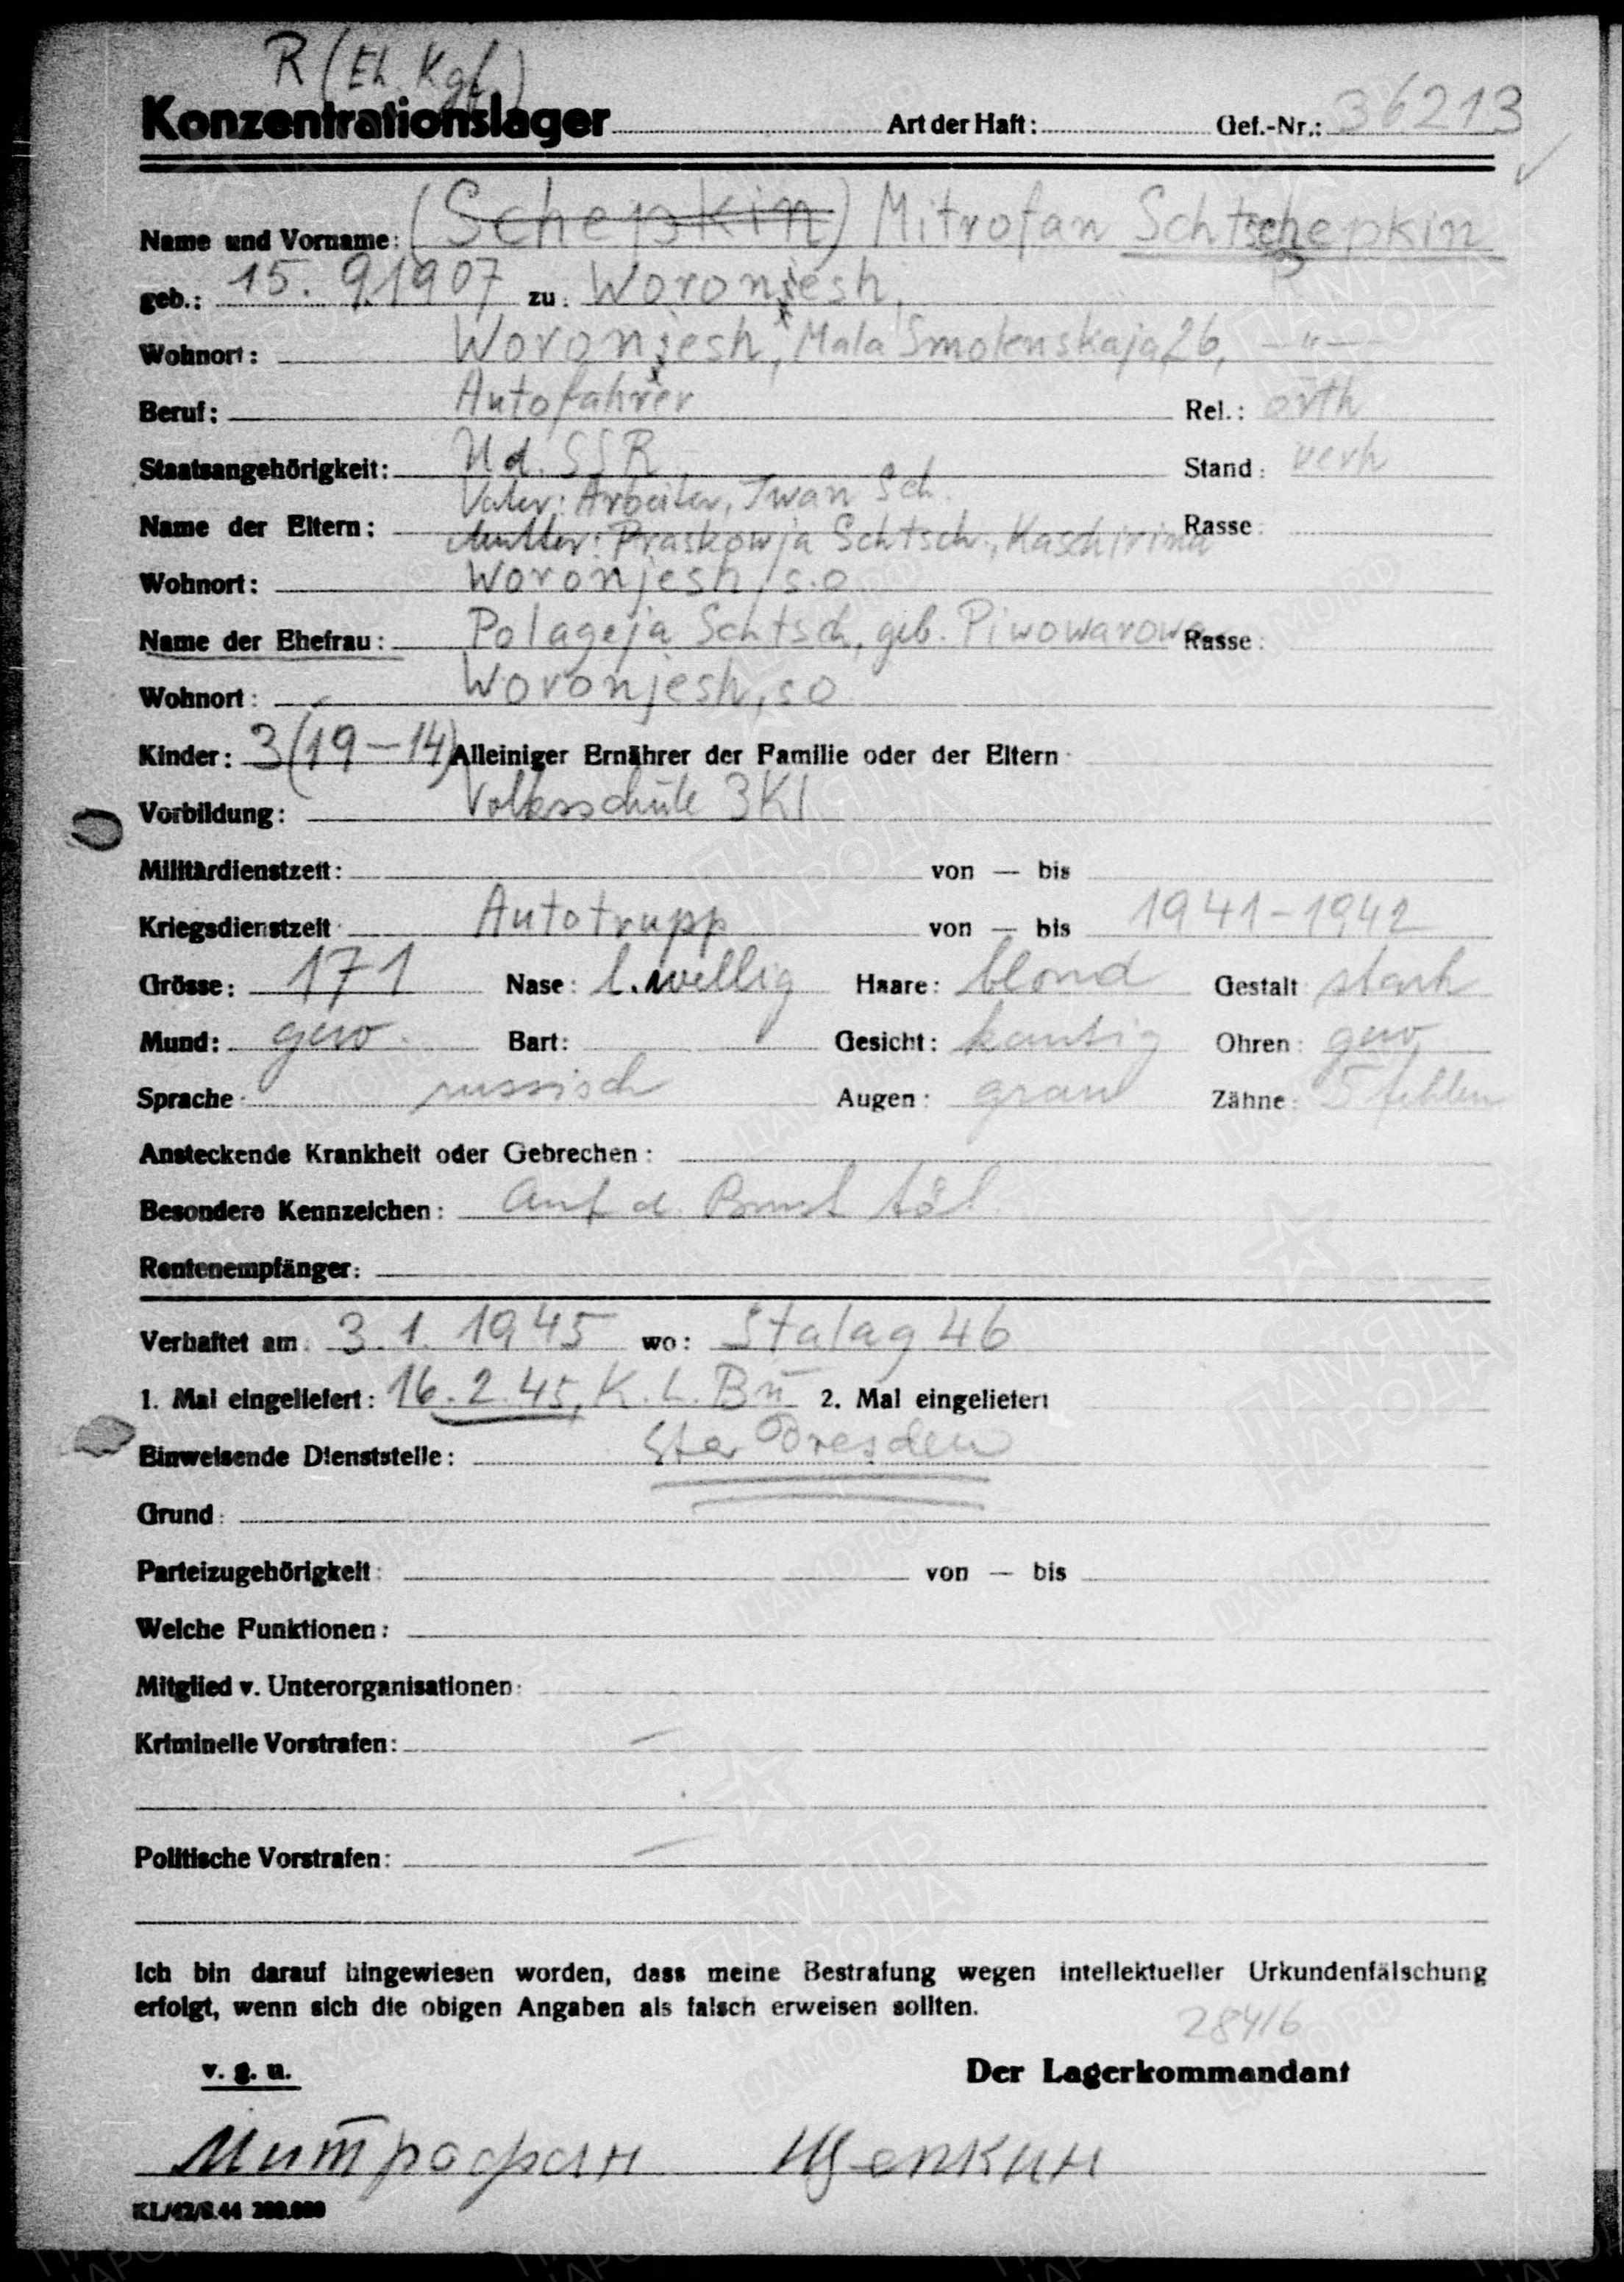 R (Eh. Kgf.)
Konzentrationslager Art der Haft: Gef.-Nr.: 36213
Name und Vorname: (Schepkin) Mitrofan Schtschepkin
geb.: 15. 9.1907 zu: Woronjesh,
Wohnort: Woronjesh, Mala Smolenskaja 26, —"—
Beruf: Autofahrer Rel.: orth
Staatsangehörigkeit: U d. SSR Stand: verh
Vater: Arbeiter, Iwan Sch.
Name der Eltern: Mutter: Praskowja Schtsch., Kaschirina Rasse:
Wohnort: Woronjesh, s.o
Name der Ehefrau: Polageja Schtsch, geb. Piwowarowa Rasse:
Wohnort: Woronjesh, so
Kinder: 3 (19–14) Alleiniger Ernährer der Familie oder der Eltern
Vorbildung: Volksschule 3 Kl
Militärdienstzeit: von — bis
Kriegsdienstzeit Autotrupp von — bis 1941-1942
Grösse: 171 Nase: l. wellig Haare: blond Gestalt stark
Mund: gew. Bart: Gesicht: kantig Ohren: gew.
Sprache russisch Augen: grau Zähne: 5 fehlen
Ansteckende Krankheit oder Gebrechen:
Besondere Kennzeichen: Auf d. Brust tät.
Rentenempfänger:
Verhaftet am 3.1. 1945 wo: Stalag 4b
1. Mal eingeliefert: 16.2.45, K.L. Bu 2. Mal eingeliefert
Einweisende Dienststelle: Dresden
Grund:
Parteizugehörigkeit: von — bis
Welche Funktionen:
Mitglied v. Unterorganisationen:
Kriminelle Vorstrafen: —
Politische Vorstrafen: —
Ich bin darauf hingewiesen worden, dass meine Bestrafung wegen intellektueller Urkundenfälschung
erfolgt, wenn sich die obigen Angaben als falsch erweisen sollten.
28416
v. g. u. Der Lagerkommandant
Митрофан Щепкин
KL/42/8.44 200.000
ПАМЯТЬ НАРОДА
ЦАМО РФ